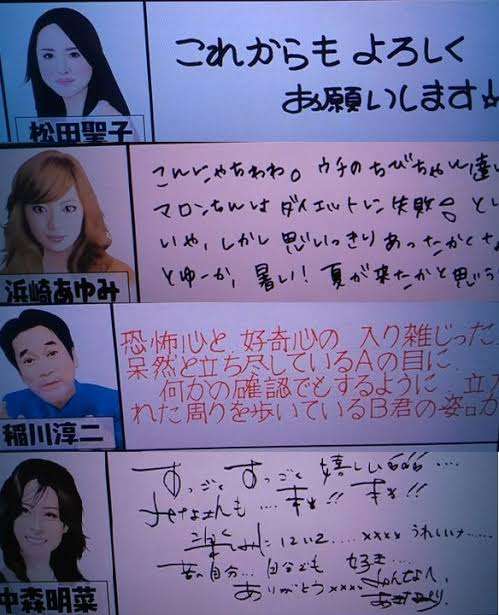 松田聖子
これからも よろしく
お願いします☆
浜崎あゆみ
こんにゃちわわ。ウチのちびちゃん達
マロンちんは ダイエットに 失敗
いや、しかし 思いっきり あったかくな
とゆーか、暑い！ 夏が来たかと思う
稲川淳二
恐怖心と 好奇心の 入り雑じった
呆然と立ち尽しているAの目に
何かの確認でもするように 立
れた周りを歩いているB君の姿が
中森明菜
すっごく すっごく 嬉しい
本当!! 本当!!
うれいナ
昔の自分… 自分でも 好き…
ありがとう